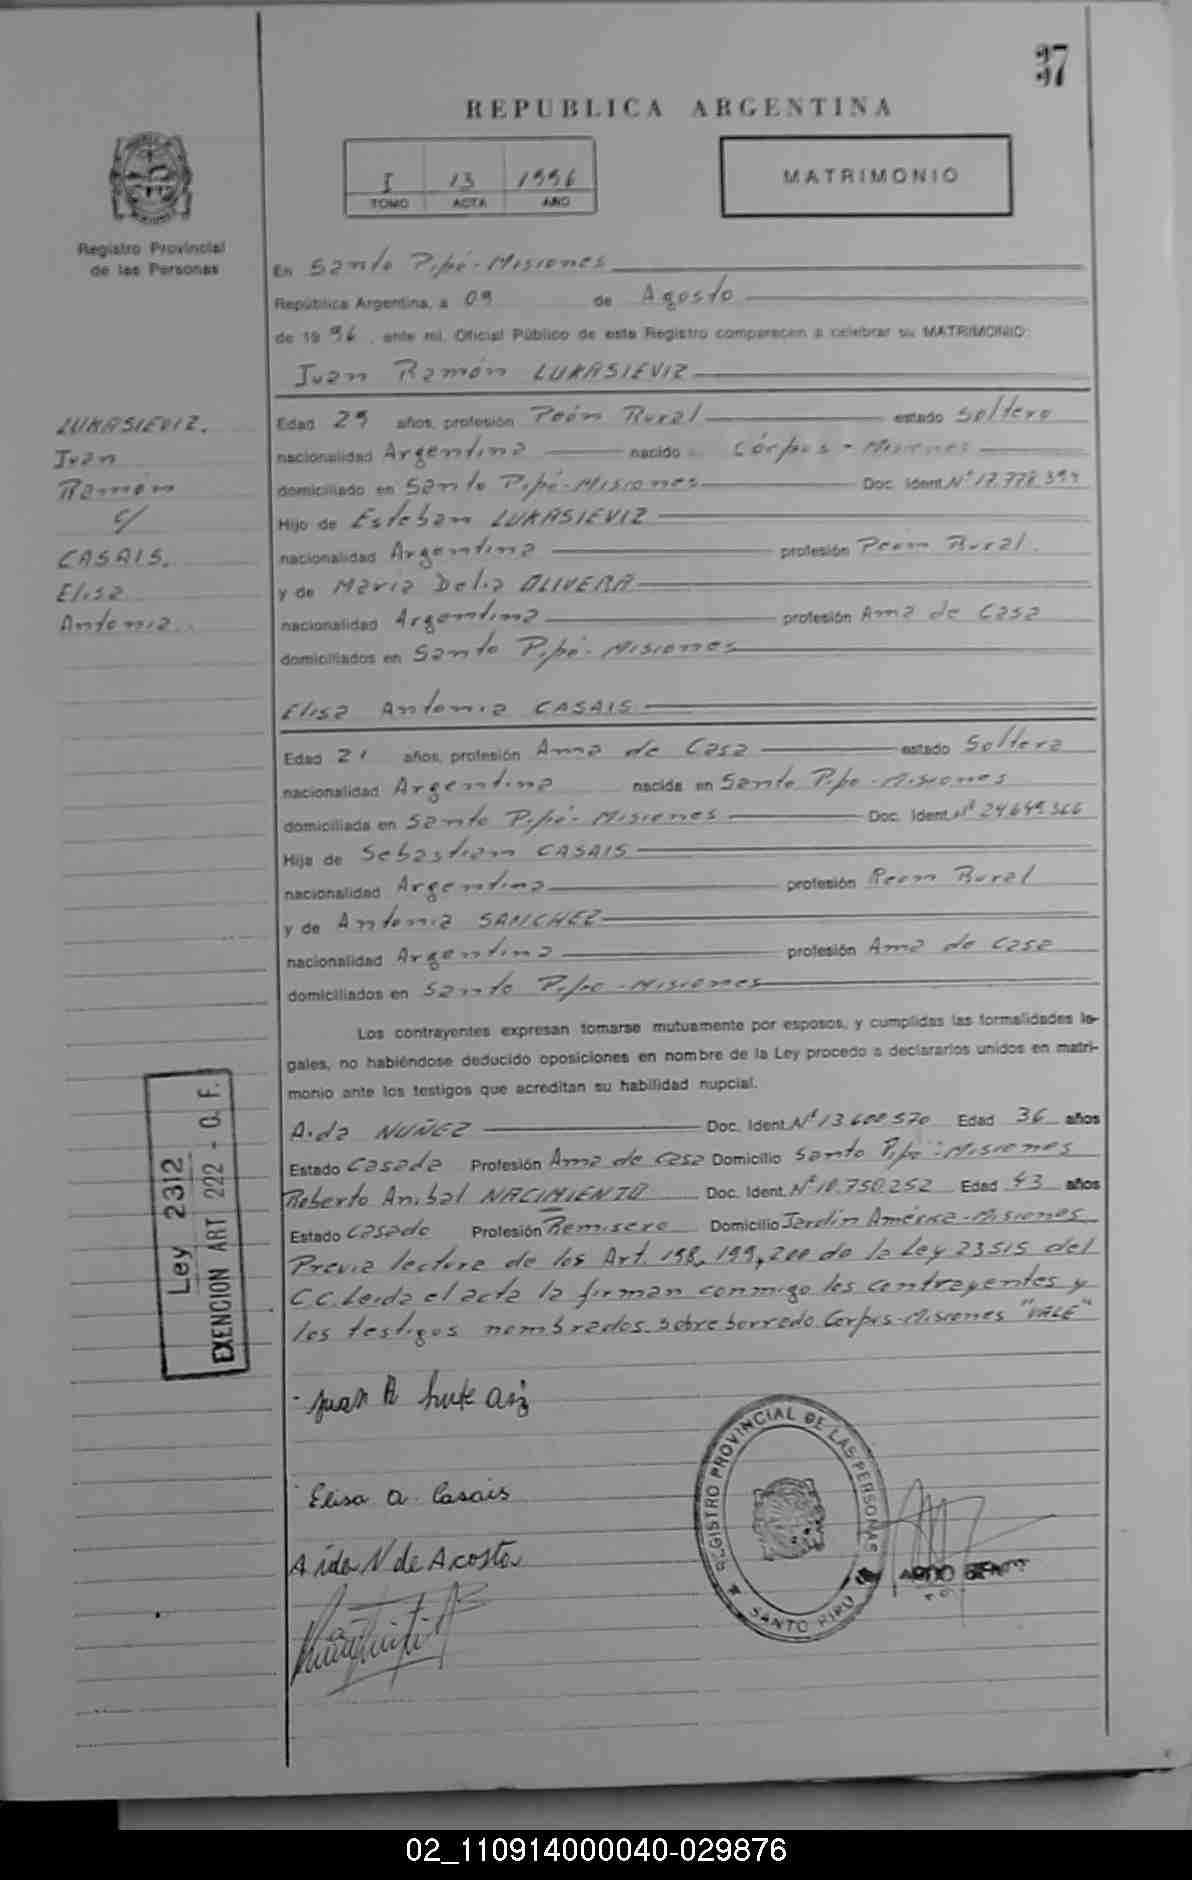 97
97
REPUBLICA ARGENTINA
I 13 1996
TOMO ACTA AÑO
MATRIMONIO
Registro Provincial
de las Personas
En Santo Pipó - Misiones
República Argentina, a 09 de Agosto
de 1996, ante mí, Oficial Público de este Registro comparecen a celebrar su MATRIMONIO:
Juan Ramón LUKASIEVIZ
LUKASIEVIZ.
Juan
Ramón
c/
CASAIS.
Elisa
Antonia.
Edad 29 años, profesión Peón Rural estado Soltero
nacionalidad Argentina nacido Córpus - Misiones
domiciliado en Santo Pipó - Misiones Doc. Ident. Nº 17.778.399
Hijo de Esteban LUKASIEVIZ
nacionalidad Argentina profesión Peón Rural.
y de Maria Delia OLIVERA
nacionalidad Argentina profesión Ama de Casa
domiciliados en Santo Pipó - Misiones
Elisa Antonia CASAIS
Edad 21 años, profesión Ama de Casa estado Soltera
nacionalidad Argentina nacida en Santo Pipo - Misiones
domiciliada en Santo Pipó - Misiones Doc. Ident. Nº 24.649.366
Hija de Sebastian CASAIS
nacionalidad Argentina profesión Peon Rural
y de Antonia SANCHEZ
nacionalidad Argentina profesión Ama de Casa
domiciliados en Santo Pipo - Misiones
Los contrayentes expresan tomarse mutuamente por esposos, y cumplidas las formalidades le-
gales, no habiéndose deducido oposiciones en nombre de la Ley procedo a declararlos unidos en matri-
monio ante los testigos que acreditan su habilidad nupcial.
Aida NUÑEZ Doc. Ident. Nº 13.600.570 Edad 36 años
Estado Casada Profesión Ama de Casa Domicilio Santo Pipó - Misiones
Roberto Anibal NACIMIENTO Doc. Ident. Nº 10.750.252 Edad 43 años
Estado Casado Profesión Remisero Domicilio Jardín América - Misiones
Previa lectura de los Art. 198, 199, 200 de la Ley 23515 del
C.C. Leida el acta la firman conmigo los contrayentes y
los testigos nombrados. sobre borrado Corpus - Misiones "VALE"
Ley 2312
EXENCION ART 222 - C. F.
Juan R
Elisa A. Casais
Aida N de Acosta
REGISTRO PROVINCIAL DE LAS PERSONAS
SANTO PIPO
02_110914000040-029876